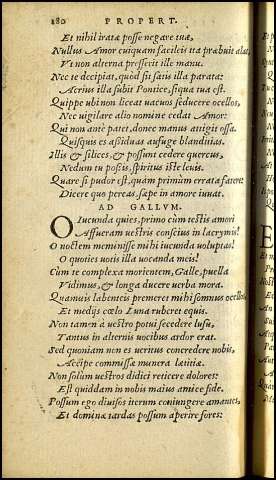 180 PROPERT.
Et nihil iratæ posse negare tuæ,
Nullus Amor cuiquam facileis ita præbuit alas,
Vt non alterna presserit ille manu.
Nec te decipiat, quòd sit satis illa parata:
Acrius illa subit Pontice, siqua tua est.
Quippe ubi non liceat uacuos seducere ocellos,
Nec uigilare alio nomine cedat Amor:
Qui non antè patet, donec manus attigit ossa.
Quisquis es assiduas aufuge blanditias.
Illis & silices, & possunt cedere quercus,
Nedum tu possis, spiritus iste leuis.
Quare si pudor est, quàm primùm errata fatere:
Dicere quo pereas, sæpe in amore iuuat.
AD GALLVM.
O Iucunda quies, primo cùm testis amori
Affueram uestris conscius in lacrymis!
O noctem meminisse mihi iucunda uoluptas!
O quoties uotis illa uocanda meis!
Cùm te complexa morientem, Galle, puella
Vidimus, & longa ducere uerba mora.
Quamuis labenteis premeret mihi somnus ocellos,
Et medijs cœlo Luna ruberet equis.
Non tamen à uestro potui secedere lusu,
Tantus in alternis uocibus ardor erat.
Sed quoniam non es ueritus concredere nobis,
Accipe commissæ munera lætitiæ.
Non solùm uestros didici reticere dolores:
Est quiddam in nobis maius amice fide.
Possum ego diuisos iterum coniungere amantes,
Et dominæ tardas possum aperire fores: